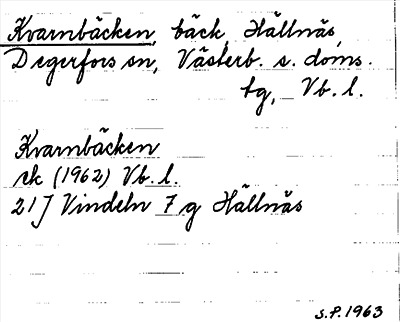 Kvarnbäcken, bäck, Hällnäs,
Degerfors sn, Västerb. s. doms.
tg, Vb. l.
Kvarnbäcken
ek (1962) Vb. l.
21J Vindeln 7 g Hällnäs
S.P. 1963